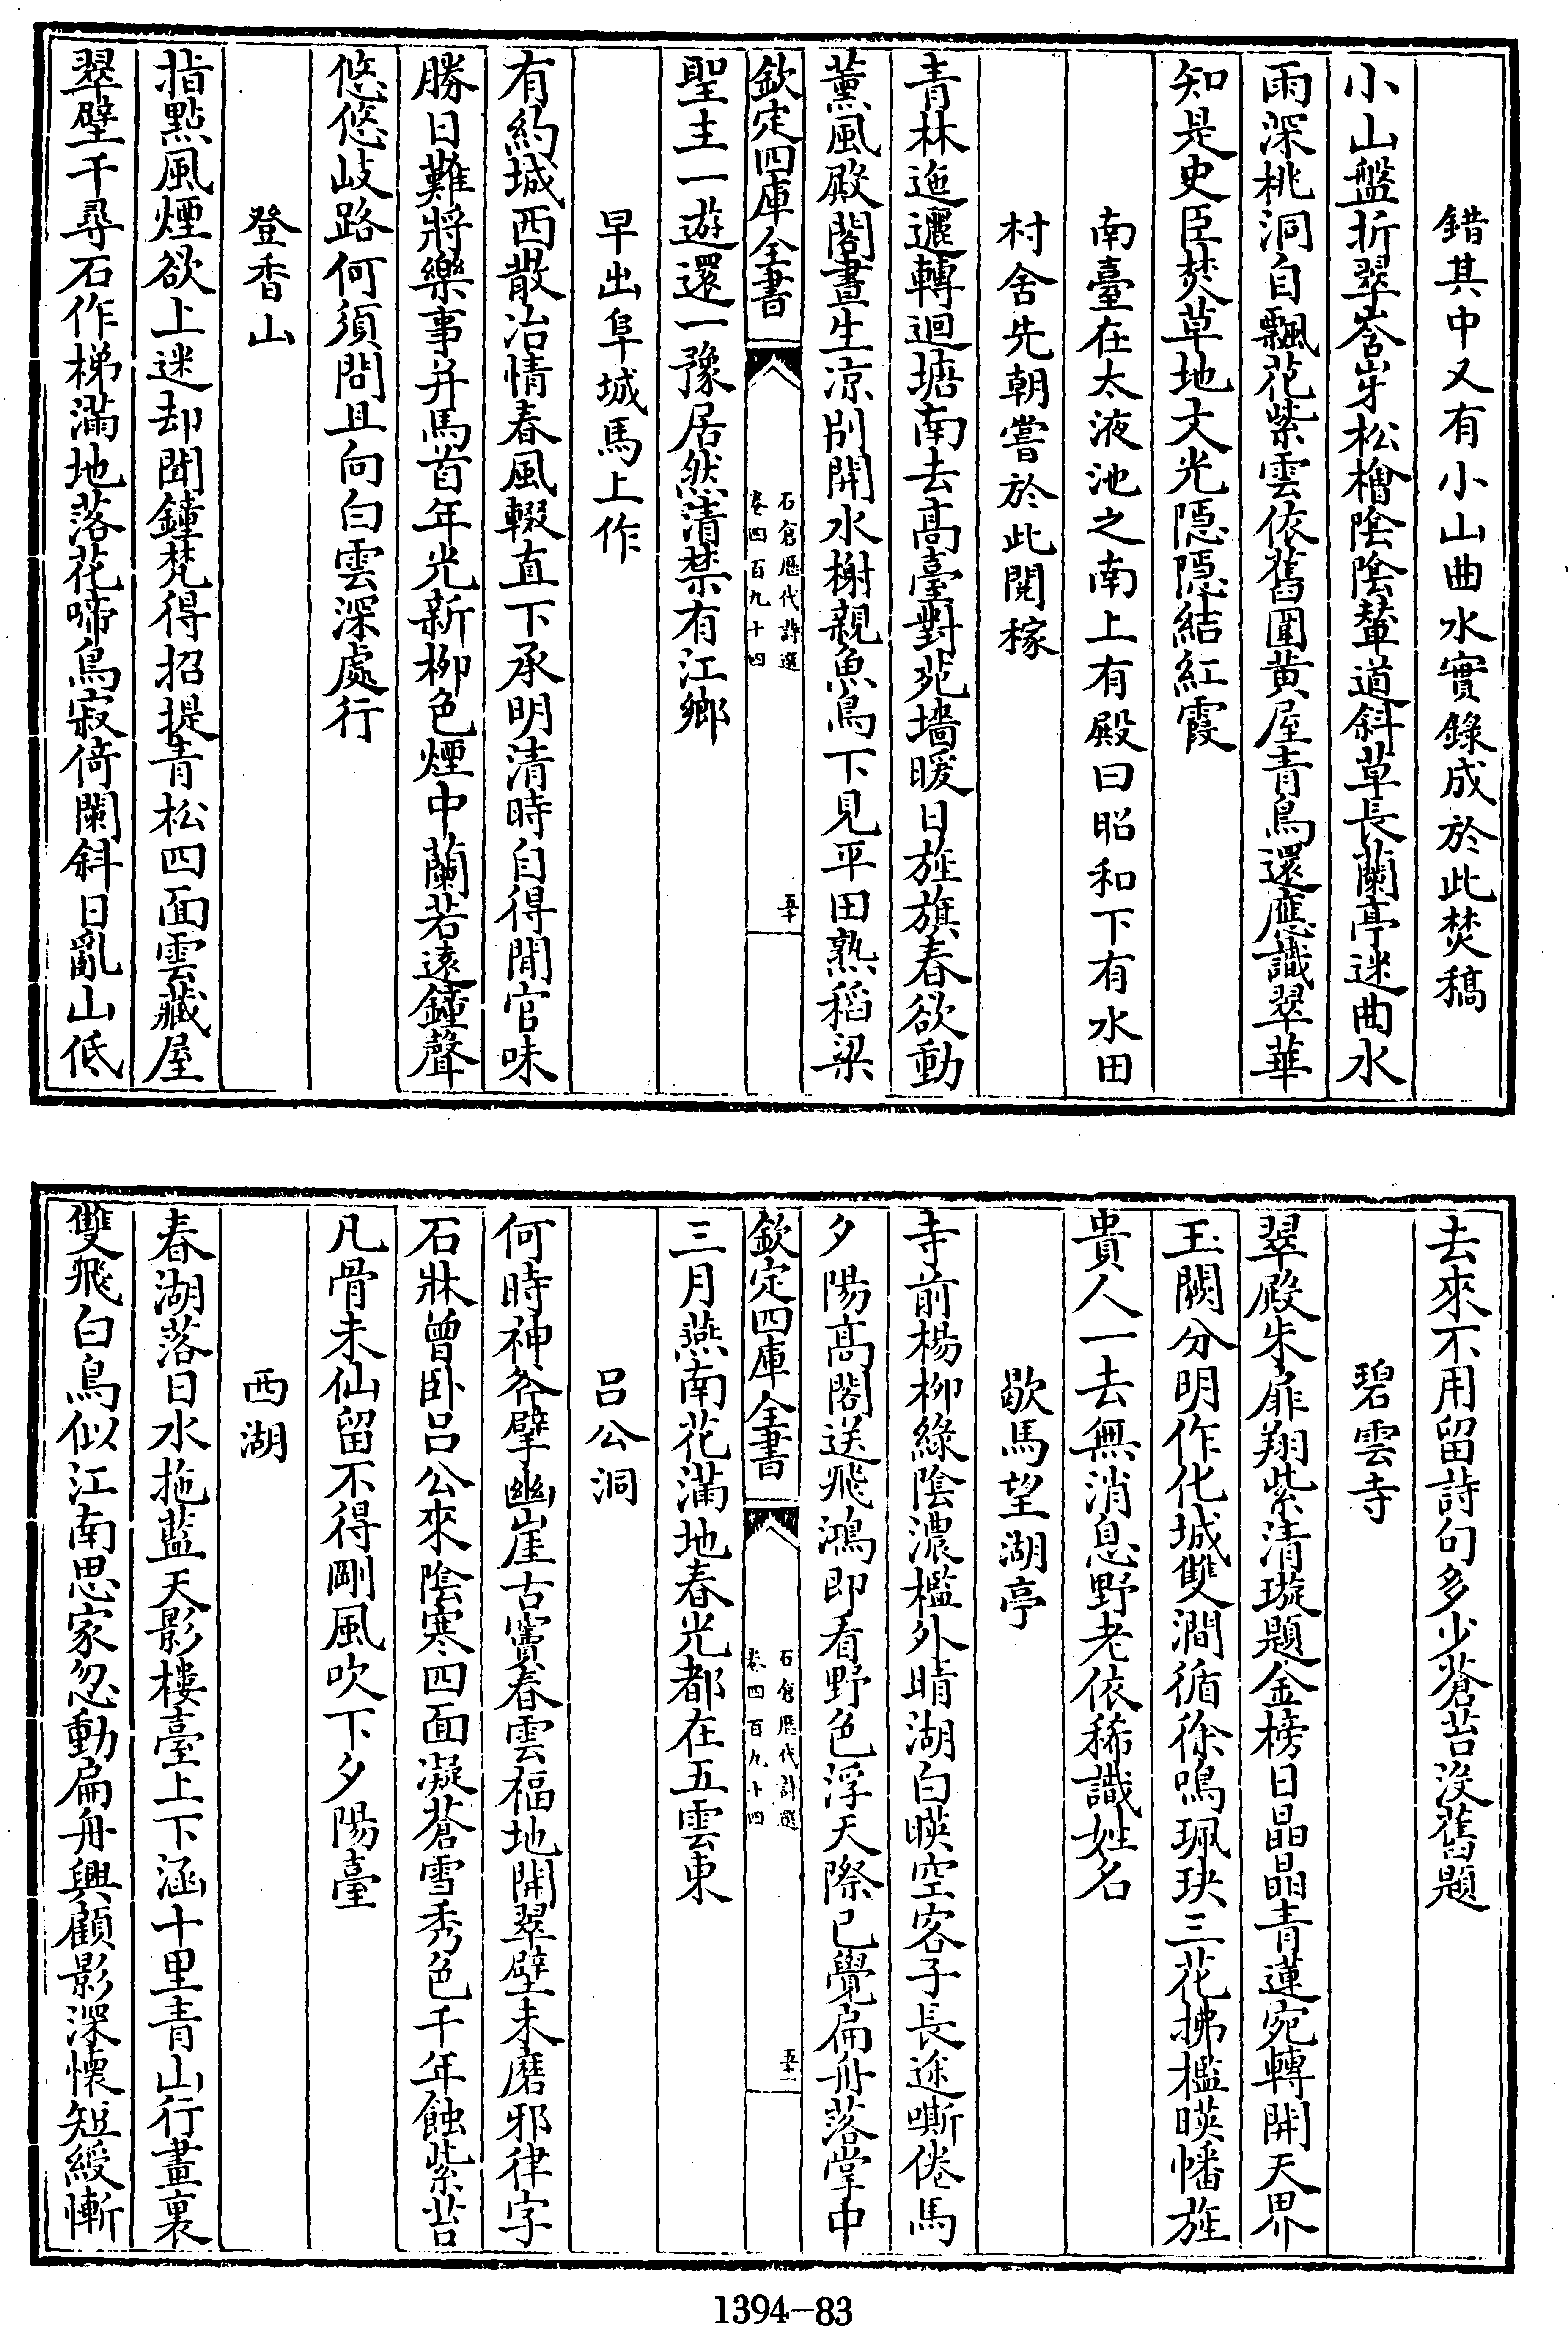 錯其中又有小山曲水實錄成於此焚稿
小山盤折翠㟏岈松檜陰陰輦道斜草長蘭亭迷曲水
雨深桃洞自飄花紫雲依舊圍黄屋青鳥還應識翠華
知是史臣焚草地文光隠隠結紅霞
南臺在太液池之南上有殿曰昭和下有水田
村舍先朝嘗於此閱稼
青林迤邐轉迴塘南去高臺對苑墻暖日旌旗春欲動
薰風殿閣晝生凉别開水榭親魚鳥下見平田熟稻粱
欽定四庫全書
石倉歴代詩選
卷四百九十四
五十
聖主一遊還一豫居然清禁有江鄉
早出阜城馬上作
有約城西散冶情春風輟直下承明清時自得閒官味
勝日難將樂事并馬首年光新柳色煙中蘭若遠鐘聲
悠悠岐路何須問且向白雲深處行
登香山
指點風煙欲上迷却聞鐘梵得招提青松四面雲藏屋
翠壁千尋石作梯滿地落花啼鳥寂倚闌斜日亂山低
去來不用留詩句多少蒼苔沒舊題
碧雲寺
翠殿朱扉翔紫清璇題金榜日晶晶青蓮宛轉開天界
玉闕分明作化城雙澗循徐鳴珮玦三花拂檻暎幡旌
貴人一去無消息野老依稀識姓名
歇馬望湖亭
寺前楊柳綠陰濃檻外晴湖白暎空客子長途嘶倦馬
夕陽高閣送飛鴻即看野色浮天際已覺扁舟落掌中
欽定四庫全書
石倉歴代詩選
卷四百九十四
五十一
三月燕南花滿地春光都在五雲東
吕公洞
何時神斧擘幽崖古竇春雲福地開翠壁未磨邪律字
石牀曾卧吕公來陰寒四面凝蒼雪秀色千年蝕紫苔
凡骨未仙留不得剛風吹下夕陽臺
西湖
春湖落日水拖藍天影樓臺上下涵十里青山行畫裏
雙飛白鳥似江南思家忽動扁舟興顧影深懷短綬慚
1394-83